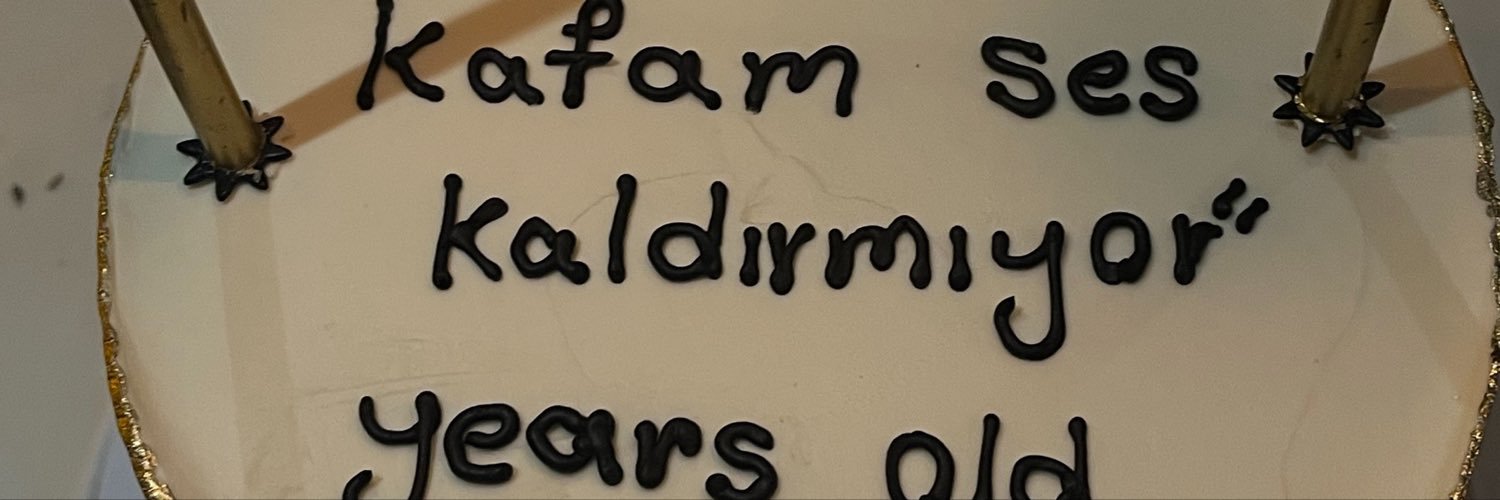 Kafam ses
Kaldırmıyor"
years old